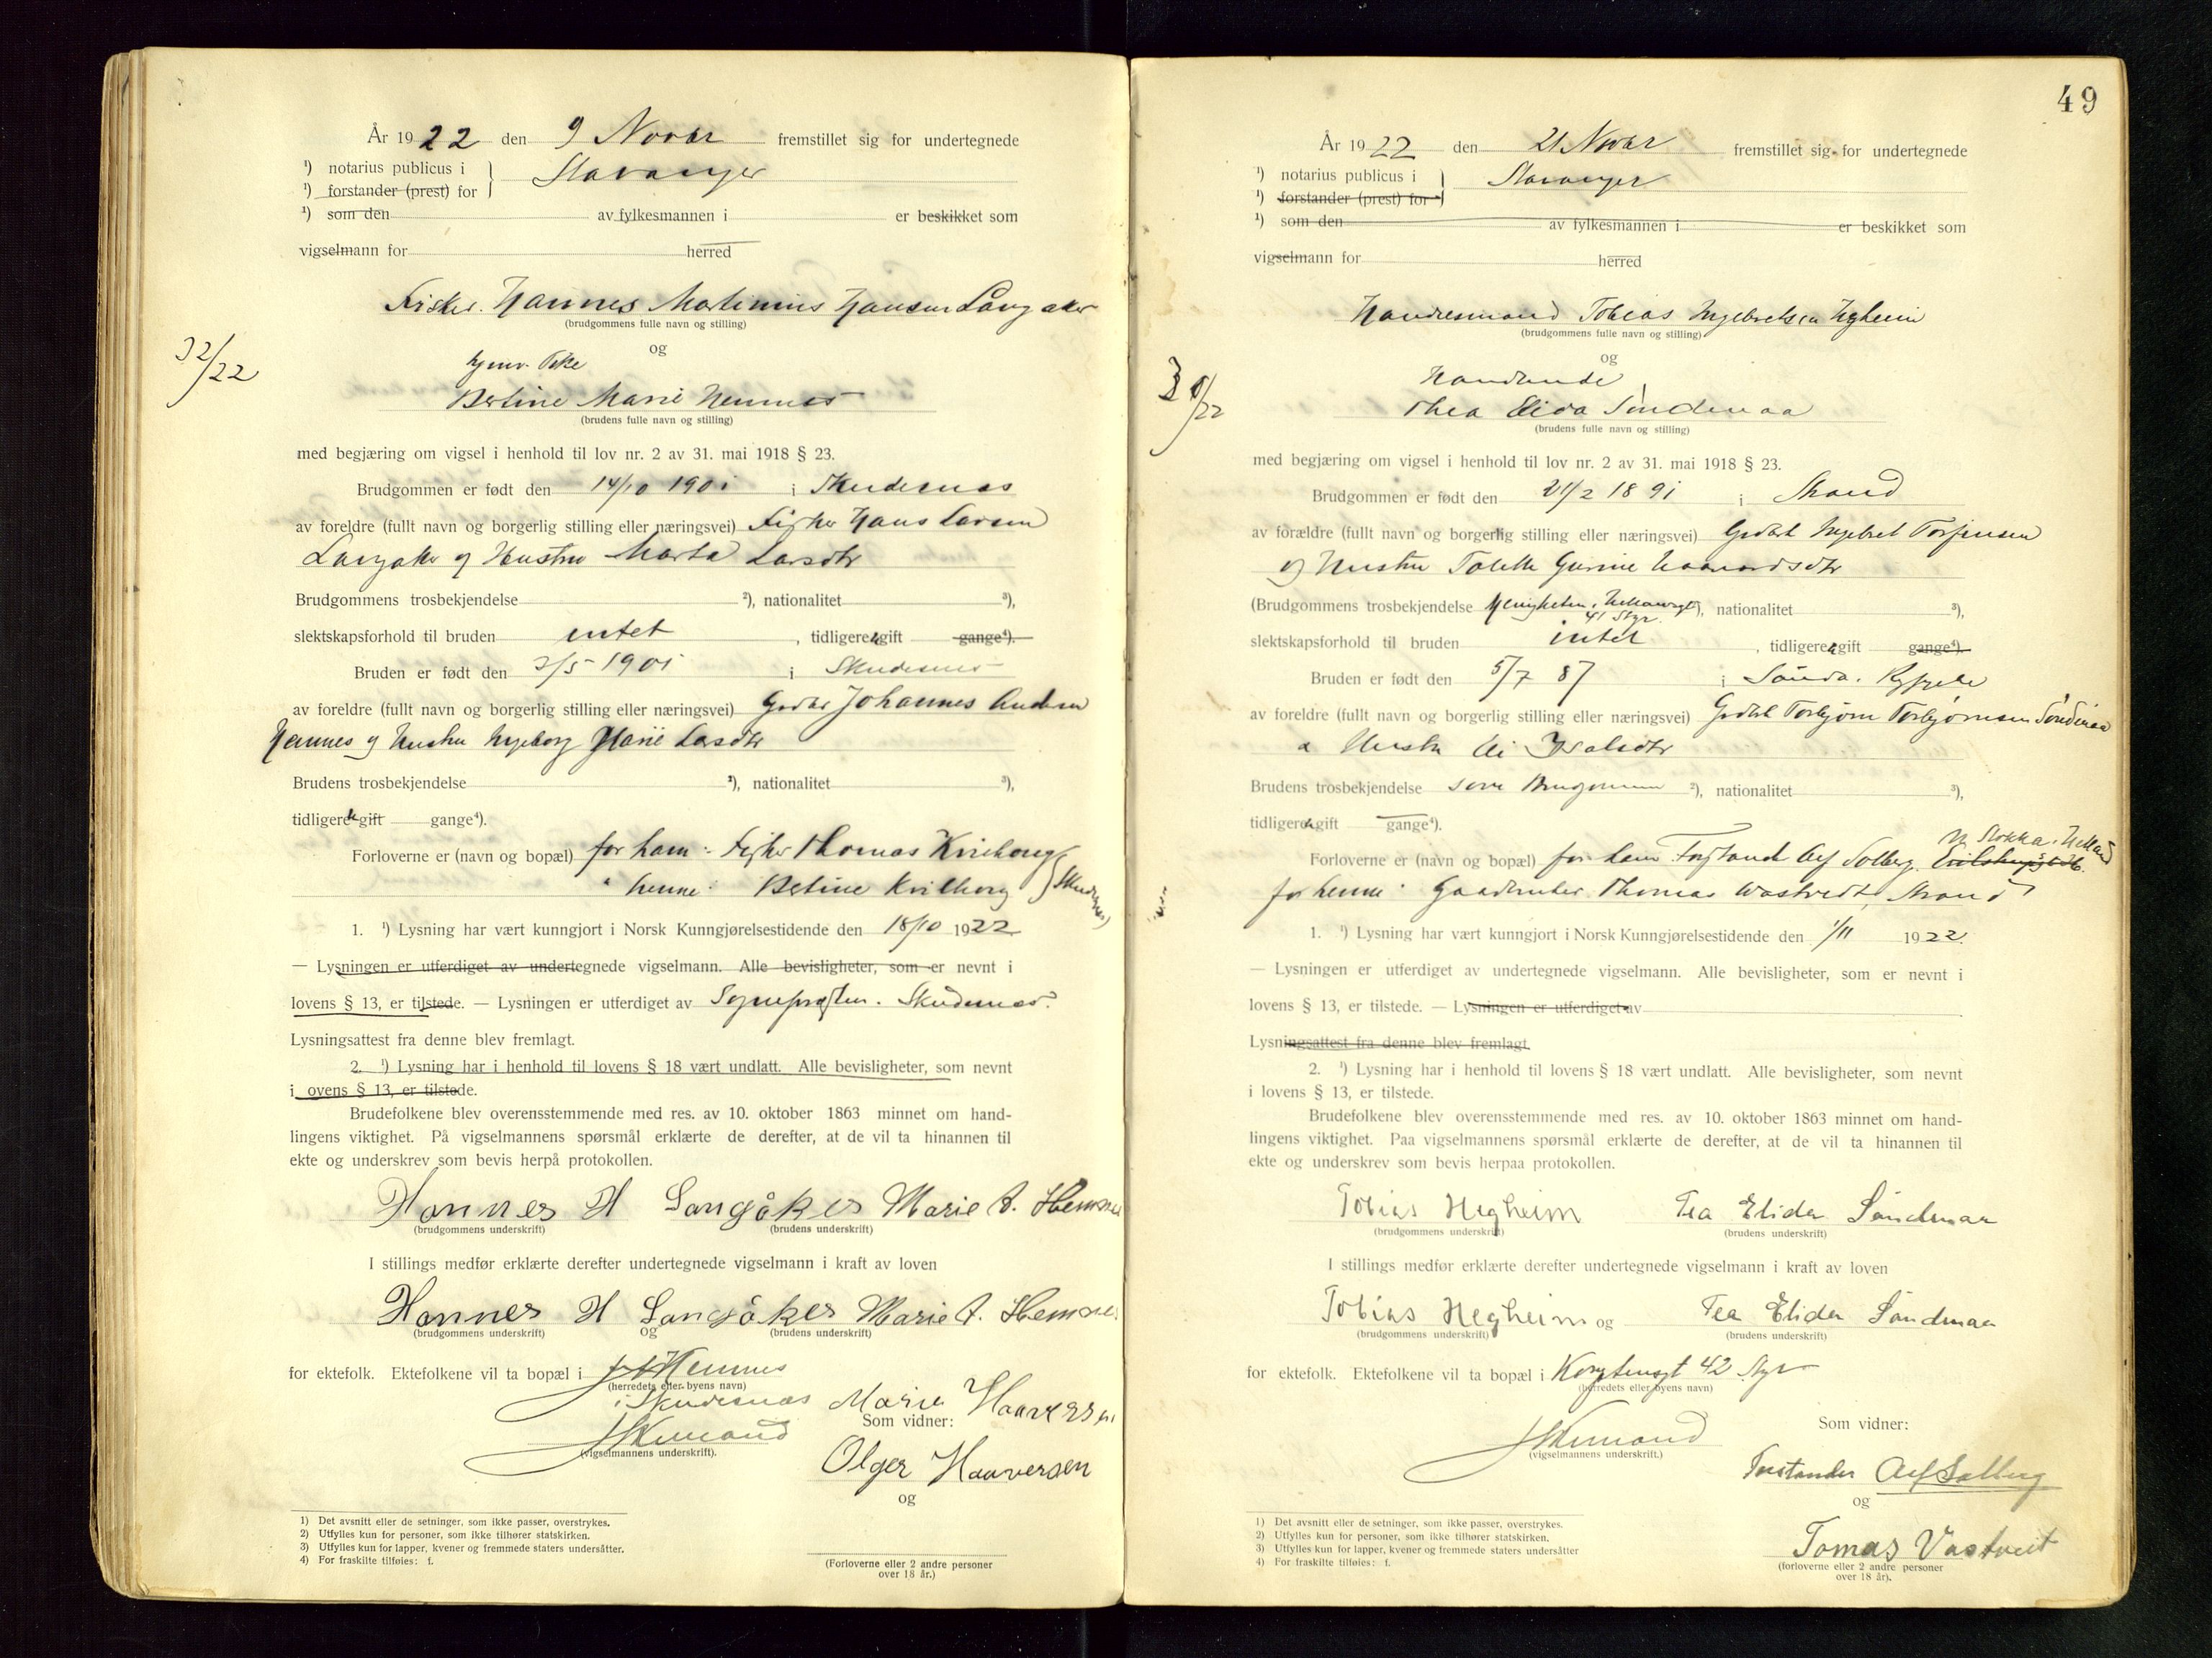 År 1922 den 9 Novbr fremstillet sig for undertegnede
¹) notarius publicus i } Stavanger
¹) forstander (prest) for
¹) som den av fylkesmannen i er beskikket som
vigselmann for herred
Fisker. Hannes Martinius Hansen Langaker
(brudgommens fulle navn og stilling)
og
32/22
hjemv. Pike
Bertine Marie Hemnes
(brudens fulle navn og stilling)
med begjæring om vigsel i henhold til lov nr. 2 av 31. mai 1918 § 23.
Brudgommen er født den 14/10 1901 i Skudesnes
av foreldre (fullt navn og borgerlig stilling eller næringsvei) Fisker Hans Larsen
Langaker og Hustru Marta Larsdtr
Brudgommens trosbekjendelse ²), nationalitet ³),
slektskapsforhold til bruden intet , tidligere gift gange⁴).
Bruden er født den 3/5 1901 i Skudesnes
av foreldre (fullt navn og borgerlig stilling eller næringsvei) Gardbr Johannes Andersen
Hemnes og Hustru Ingeborg Marie Larsdtr
Brudens trosbekjendelse ²), nationalitet ³),
tidligere gift gange⁴).
Forloverne er (navn og bopæl) for ham: Fisker Thomas Kvilhaug
" henne: Bertine Kvilhaug } Skudesnes
1. ¹) Lysning har vært kunngjort i Norsk Kunngjørelsestidende den 18/10 1922
— Lysningen er utferdiget av undertegnede vigselmann. Alle bevisligheter, som er nevnt i
lovens § 13, er tilstede. — Lysningen er utferdiget av Sognepresten. Skudesnes.
Lysningsattest fra denne blev fremlagt.
2. ¹) Lysning har i henhold til lovens § 18 vært undlatt. Alle bevisligheter, som nevnt
i ovens § 13, er tilstede.
Brudefolkene blev overensstemmende med res. av 10. oktober 1863 minnet om hand-
lingens viktighet. På vigselmannens spørsmål erklærte de derefter, at de vil ta hinannen til
ekte og underskrev som bevis herpå protokollen.
Hannes H Langåker Marie A. Hemnes
(brudgommens underskrift) (brudens underskrift)
I stillings medfør erklærte derefter undertegnede vigselmann i kraft av loven
Hannes H Langåker Marie A. Hemnes
(brudgommens underskrift) og (brudens underskrift)
for ektefolk. Ektefolkene vil ta bopæl i Hemnes
(herredets eller byens navn)
i Skudesnes Marie Haaversen
Som vidner:
(vigselmannens underskrift).
Olger Haaversen
og
1) Det avsnitt eller de setninger, som ikke passer, overstrykes.
2) Utfylles kun for personer, som ikke tilhører statskirken.
3) Utfylles kun for lapper, kvener og fremmede staters undersåtter.
4) For fraskilte tilføies: f.
(Forloverne eller 2 andre personer
over 18 år.)
49
År 1922 den 21 Novbr fremstillet sig for undertegnede
¹) notarius publicus i } Stavanger
¹) forstander (prest) for
¹) som den av fylkesmannen i er beskikket som
vigselmann for herred
Handelsmand Tobias Ingebretsen Hegheim
(brudgommens fulle navn og stilling)
og
Handlende
Thea Elida Søndenaa
(brudens fulle navn og stilling)
med begjæring om vigsel i henhold til lov nr. 2 av 31. mai 1918 § 23.
Brudgommen er født den 21/2 1891 i Strand
av forældre (fullt navn og borgerlig stilling eller næringsvei) Gardbr Ingebret Torjussen
og Hustru Gurine
(Brudgommens trosbekjendelse Menigheten, 41 Stgr. ²), nationalitet ³),
slektskapsforhold til bruden intet , tidligere gift gange⁴).
Bruden er født den 5/7 87 i Ryfylke
av foreldre (fullt navn og borgerlig stilling eller næringsvei) Gardbr Torbjørn Torbjørnsen Søndenaa
Hustru
Brudens trosbekjendelse som Brudgommen ²), nationalitet ³),
tidligere gift gange⁴).
Forloverne er (navn og bopæl) for ham Forstand Alf Solberg.
for henne: Gaardbruker Thomas Vastveit, Strand
1. ¹) Lysning har vært kunngjort i Norsk Kunngjørelsestidende den 1/11 1922.
— Lysningen er utferdiget av undertegnede vigselmann. Alle bevisligheter, som er nevnt i
lovens § 13, er tilstede. — Lysningen er utferdiget av
Lysningsattest fra denne blev fremlagt.
2. ¹) Lysning har i henhold til lovens § 18 vært undlatt. Alle bevisligheter, som nevnt
i lovens § 13, er tilstede.
Brudefolkene blev overensstemmende med res. av 10. oktober 1863 minnet om hand-
lingens viktighet. Paa vigselmannens spørsmål erklærte de derefter, at de vil ta hinannen til
ekte og underskrev som bevis herpaa protokollen.
Tobias Hegheim Tea Elida Søndenaa
(brudgommens underskrift) (brudens underskrift)
I stillings medfør erklærte derefter undertegnede vigselmann i kraft av loven
Tobias Hegheim og Tea Elida Søndenaa
(brudgommens underskrift) (brudens underskrift)
for ektefolk. Ektefolkene vil ta bopæl i Kongsteinsgt 42 Stgr
(herredets eller byens navn)
Som vidner:
(vigselmannens underskrift.)
Forstander Alf Solberg
og
Tomas Vastveit
1) Det avsnitt eller de setninger, som ikke passer, overstrykes.
2) Utfylles kun for personer, som ikke tilhører statskirken.
3) Utfylles kun for lapper, kvener og fremmede staters undersåtter
4) For fraskilte tilføies: f.
(forloverne eller 2 andre personer
over 18 år).